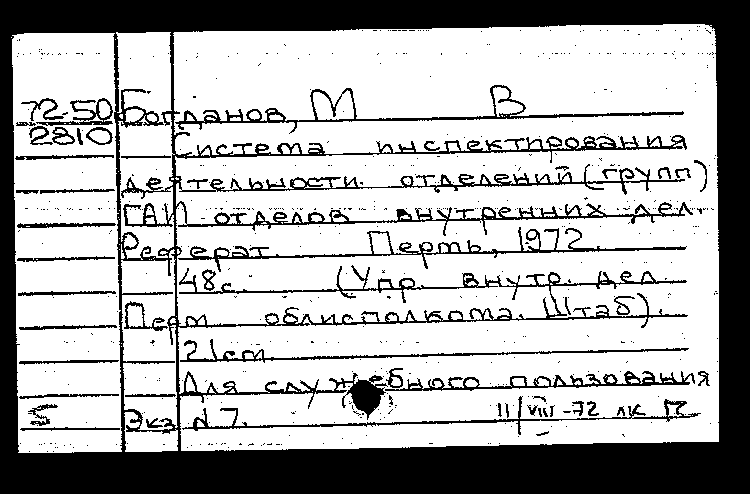 72-50 Богданов, М В
2810 Система инспектирования
деятельности отделений (групп)
ГАИ отделов внутренних дел.
Реферат. Пермь, 1972.
48с. (Упр. внутр. дел.
Перм облисполкома. Штаб).
21см.
Для служебного пользования
5 Экз N 7. 11/VIII-72 лк